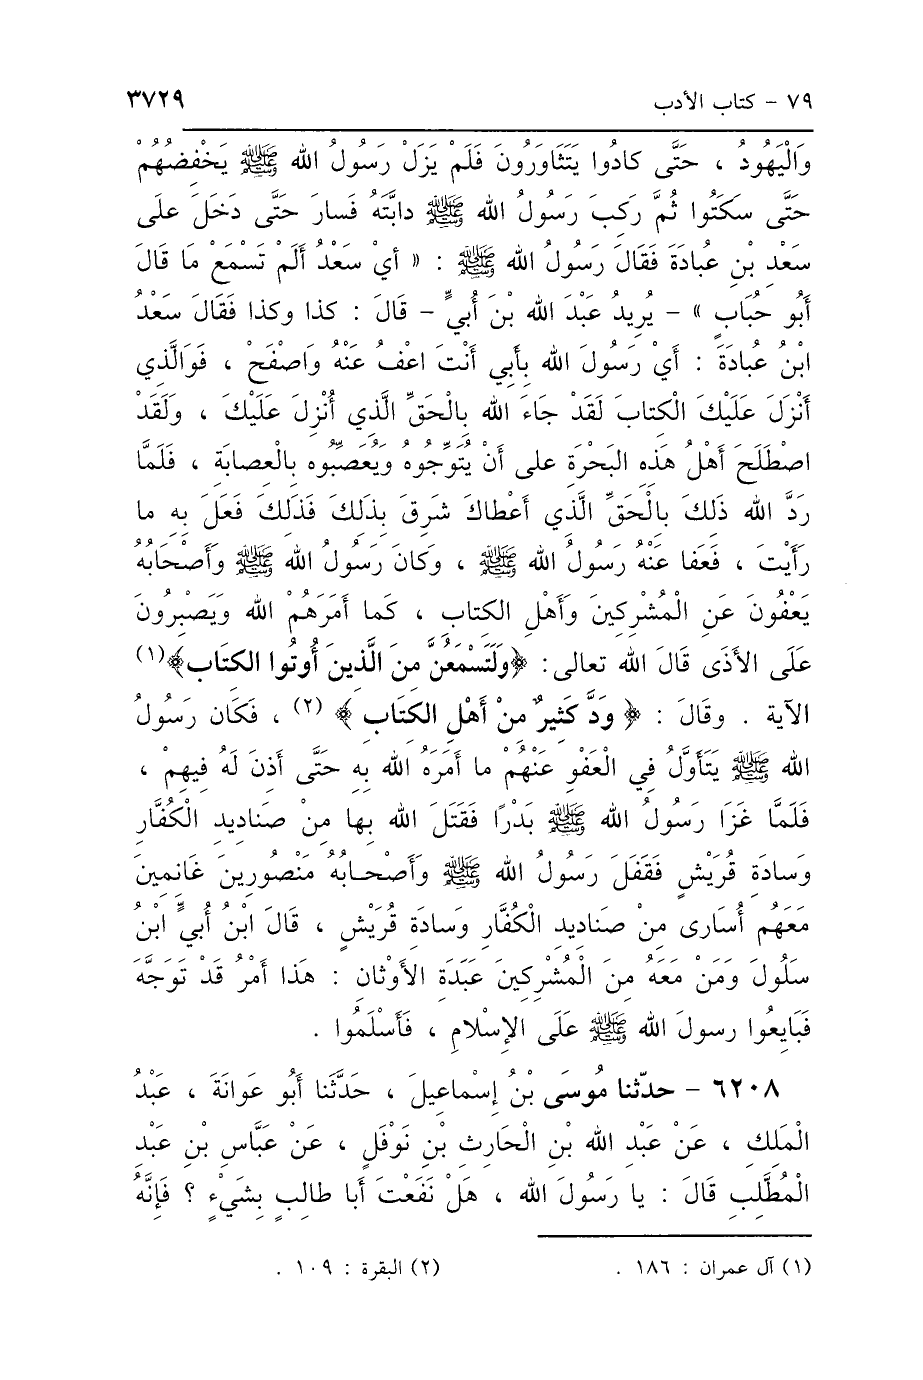 ٧٩ - كتاب الأدب ٣٧٢٩
وَالْيَهُودُ ، حَتَّى كادُوا يَتَثَاوَرُونَ فَلَمْ يَزَلْ رَسُولُ الله ﷺ يَخْفِضُهُمْ
حَتَّى سكَتُوا ثُمَّ رَكِبَ رَسُولُ الله ﷺ دابَّتَهُ فَسارَ حَتَّى دَخَلَ على
سَعْدِ بْنِ عُبادَةَ فَقَالَ رَسُولُ الله ﷺ : « أيْ سَعْدُ أَلَمْ تَسْمَعْ مَا قَالَ
أَبُو حُبَابٍ » - يُرِيدُ عَبْدَ الله بْنَ أُبيٍّ - قَالَ : كذا وكذا فَقَالَ سَعْدُ
ابْنُ عُبادَةَ : أَيْ رَسُولَ الله بِأَبي أَنْتَ اعْفُ عَنْهُ وَاصْفَحْ ، فَوَالَّذِي
أَنْزَلَ عَلَيْكَ الْكتابَ لَقَدْ جاءَ الله بِالْحَقِّ الَّذِي أُنْزِلَ عَلَيْكَ ، وَلَقَدْ
اصْطَلَحَ أَهْلُ هَذِهِ البَحْرَةِ على أَنْ يُتَوِّجُوهُ وَيُعَصِّبُوه بِالْعصابَةِ ، فَلَمَّا
رَدَّ الله ذَلِكَ بِالْحَقِّ الَّذِي أَعْطاكَ شَرِقَ بِذَلِكَ فَذَلِكَ فَعَلَ بِهِ ما
رَأَيْتَ ، فَعَفا عَنْهُ رَسُولُ الله ﷺ ، وَكانَ رَسُولُ الله ﷺ وأَصْحابُهُ
يَعْفُونَ عَنِ الْمُشْرِكِينَ وَأَهْلِ الكتابِ ، كَما أَمَرَهُمْ الله وَيَصْبِرُونَ
عَلَى الأَذَى قَالَ الله تعالى : ﴿وَلَتَسْمَعُنَّ مِنَ الَّذِينَ أُوتُوا الكتَاب﴾(١)
الآية . وقَالَ : ﴿ وَدَّ كَثِيرٌ مِنْ أَهْلِ الكتَابِ ﴾ (٢) ، فَكَان رَسُولُ
الله ﷺ يَتَأَوَّلُ فِي الْعَفْوِ عَنْهُمْ ما أَمَرَهُ الله بِهِ حَتَّى أَذِنَ لَهُ فِيهِمْ ،
فَلَمَّا غَزَا رَسُولُ الله ﷺ بَدْرًا فَقَتَلَ الله بِها مِنْ صَنادِيدِ الْكُفَّارِ
وَسادَةِ قُرَيْشٍ فَقَفَلَ رَسُولُ الله ﷺ وأَصْحـابُهُ مَنْصُورِينَ غَانِمِينَ
مَعَهُم أُسَارى مِنْ صَنادِيدِ الْكُفَّارِ وسَادَةِ قُرَيْشٍ ، قَالَ ابْنُ أُبيٍّ ابْنُ
سَلُولَ وَمَنْ مَعَهُ مِنَ الْمُشْرِكِينَ عَبَدَةِ الأَوْثَانِ : هَذا أَمْرٌ قَدْ تَوَجَّهَ
فَبَايِعُوا رسولَ الله ﷺ عَلَى الإِسْلامِ ، فَأَسْلَمُوا .
٦٢٠٨ - حدّثنا مُوسَى بْنُ إِسْماعِيلَ ، حَدَّثَنا أَبُو عَوانَةَ ، عَبْدُ
الْمَلِكِ ، عَنْ عَبْدِ الله بْنِ الْحَارِثِ بْنِ نَوْفَلٍ ، عَنْ عَبَّاسِ بْنِ عَبْدِ
الْمُطَّلِبِ قَالَ : يا رَسُولَ الله ، هَلْ نَفَعْتَ أَبا طالِبٍ بِشَيْءٍ ؟ فَإِنَّهُ
(١) آل عمران : ١٨٦ . (٢) البقرة : ١٠٩ .